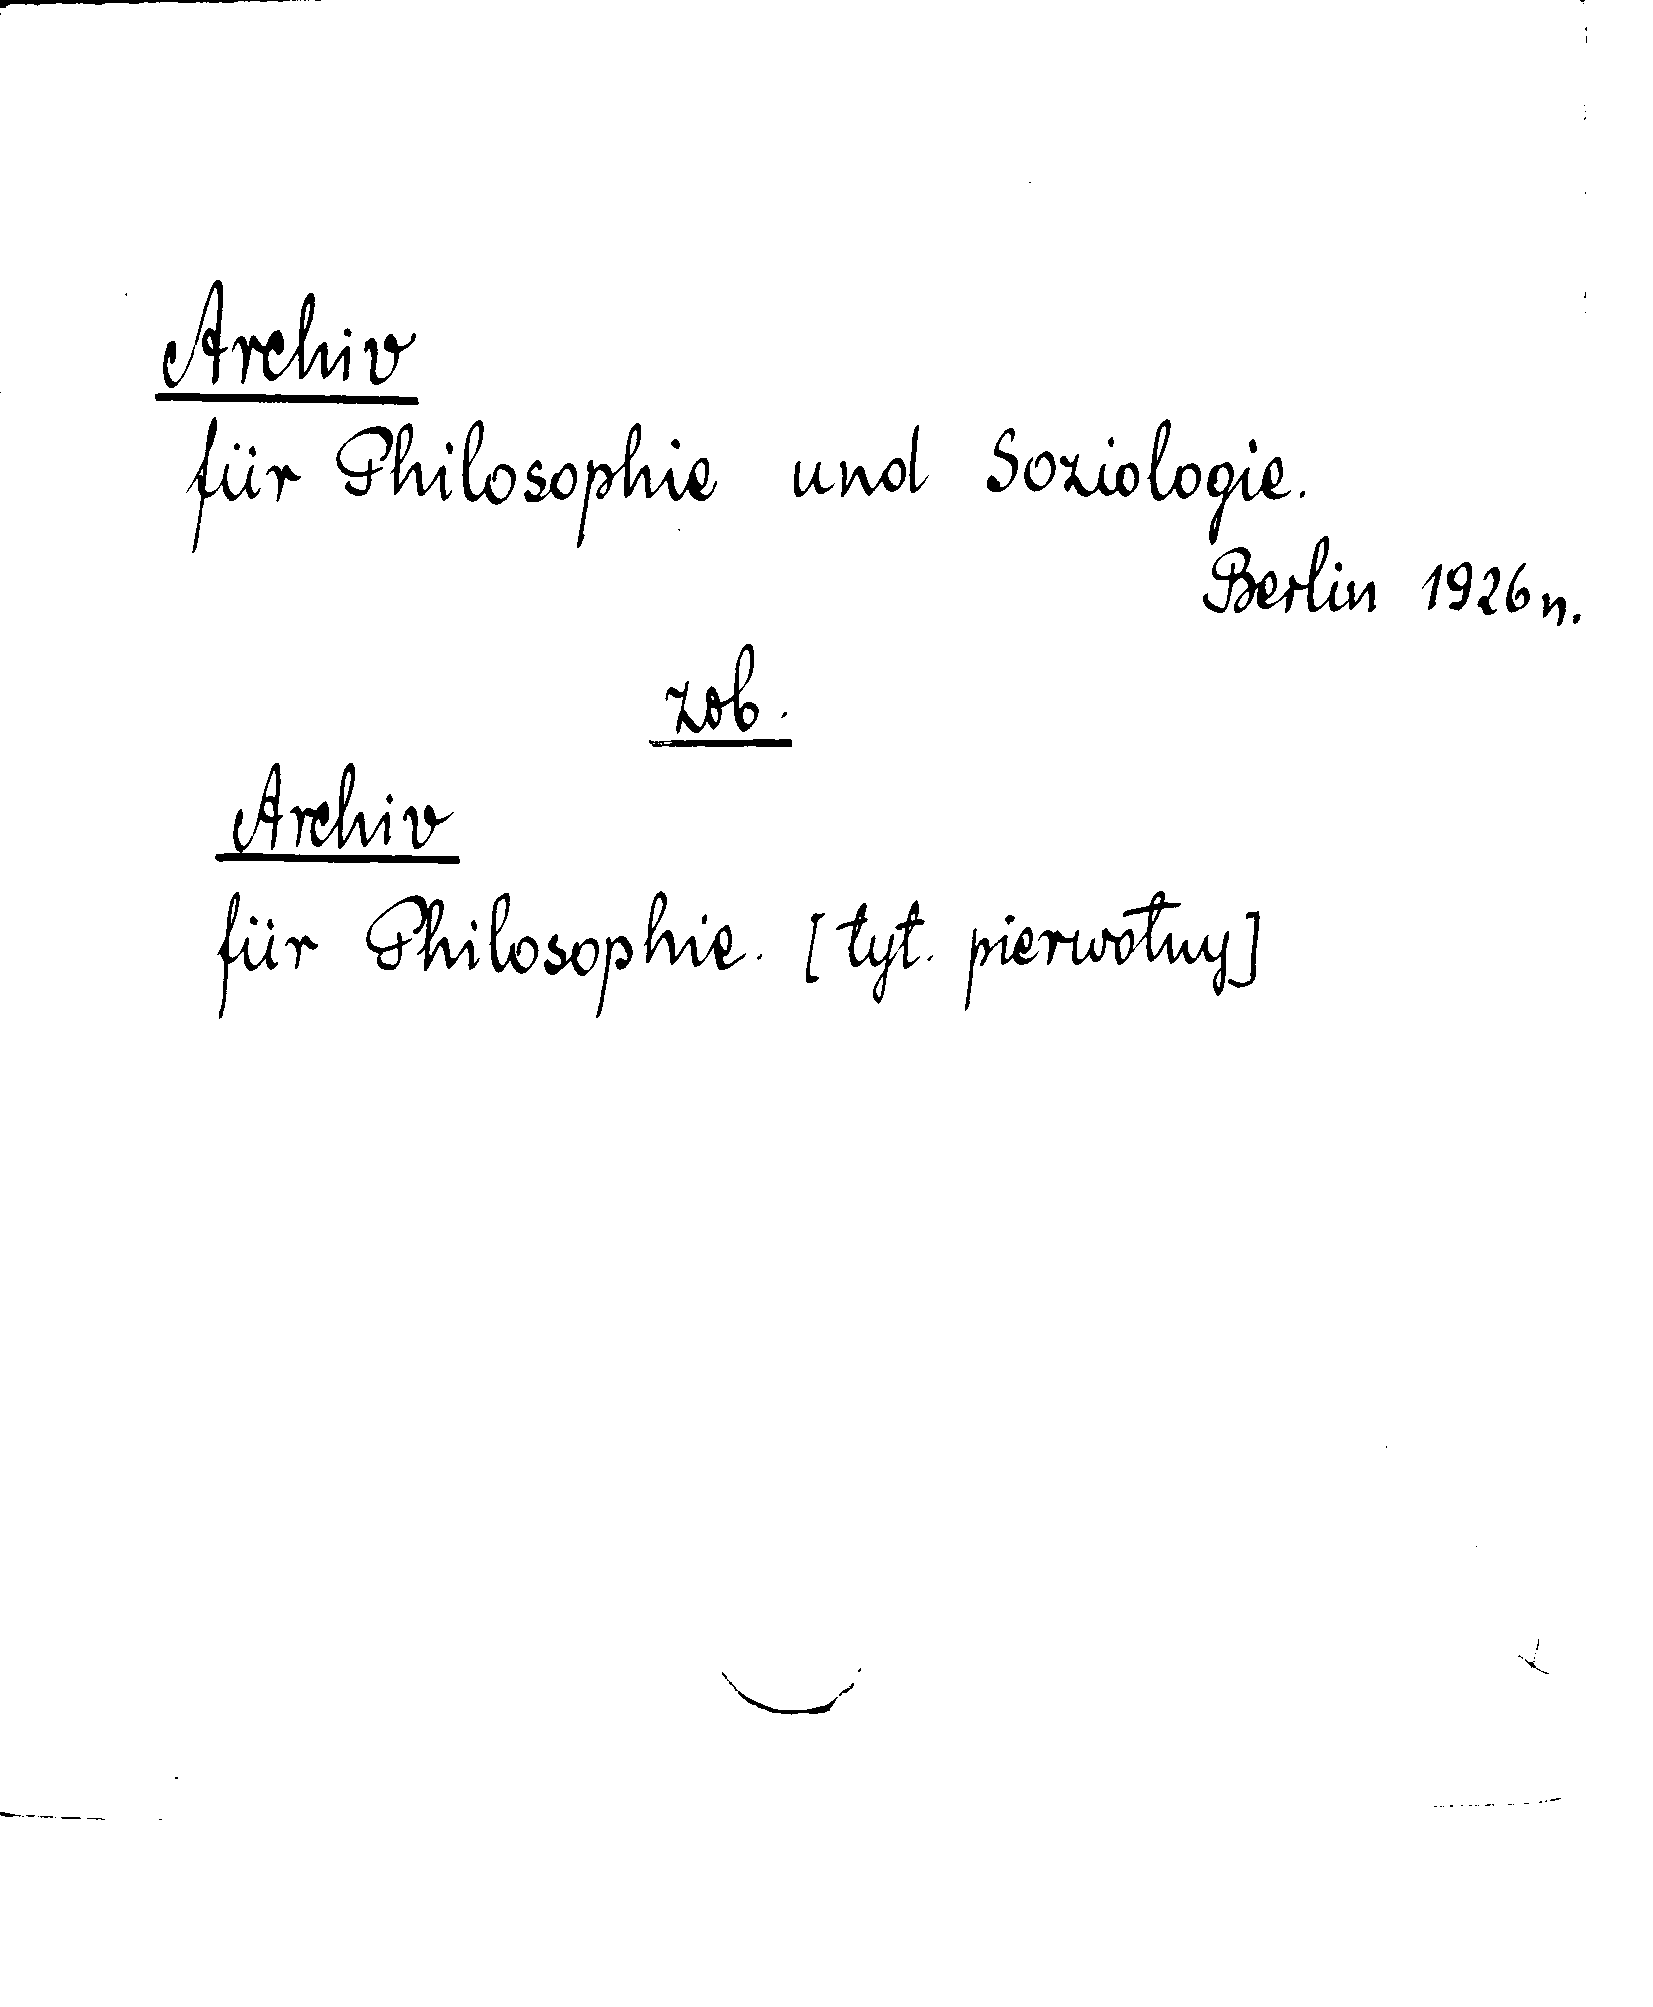 Archiv
für Philosophie und Soziologie.
Berlin 1926 n.
zob.
Archiv
für Philosophie. [tyt. pierwotny]